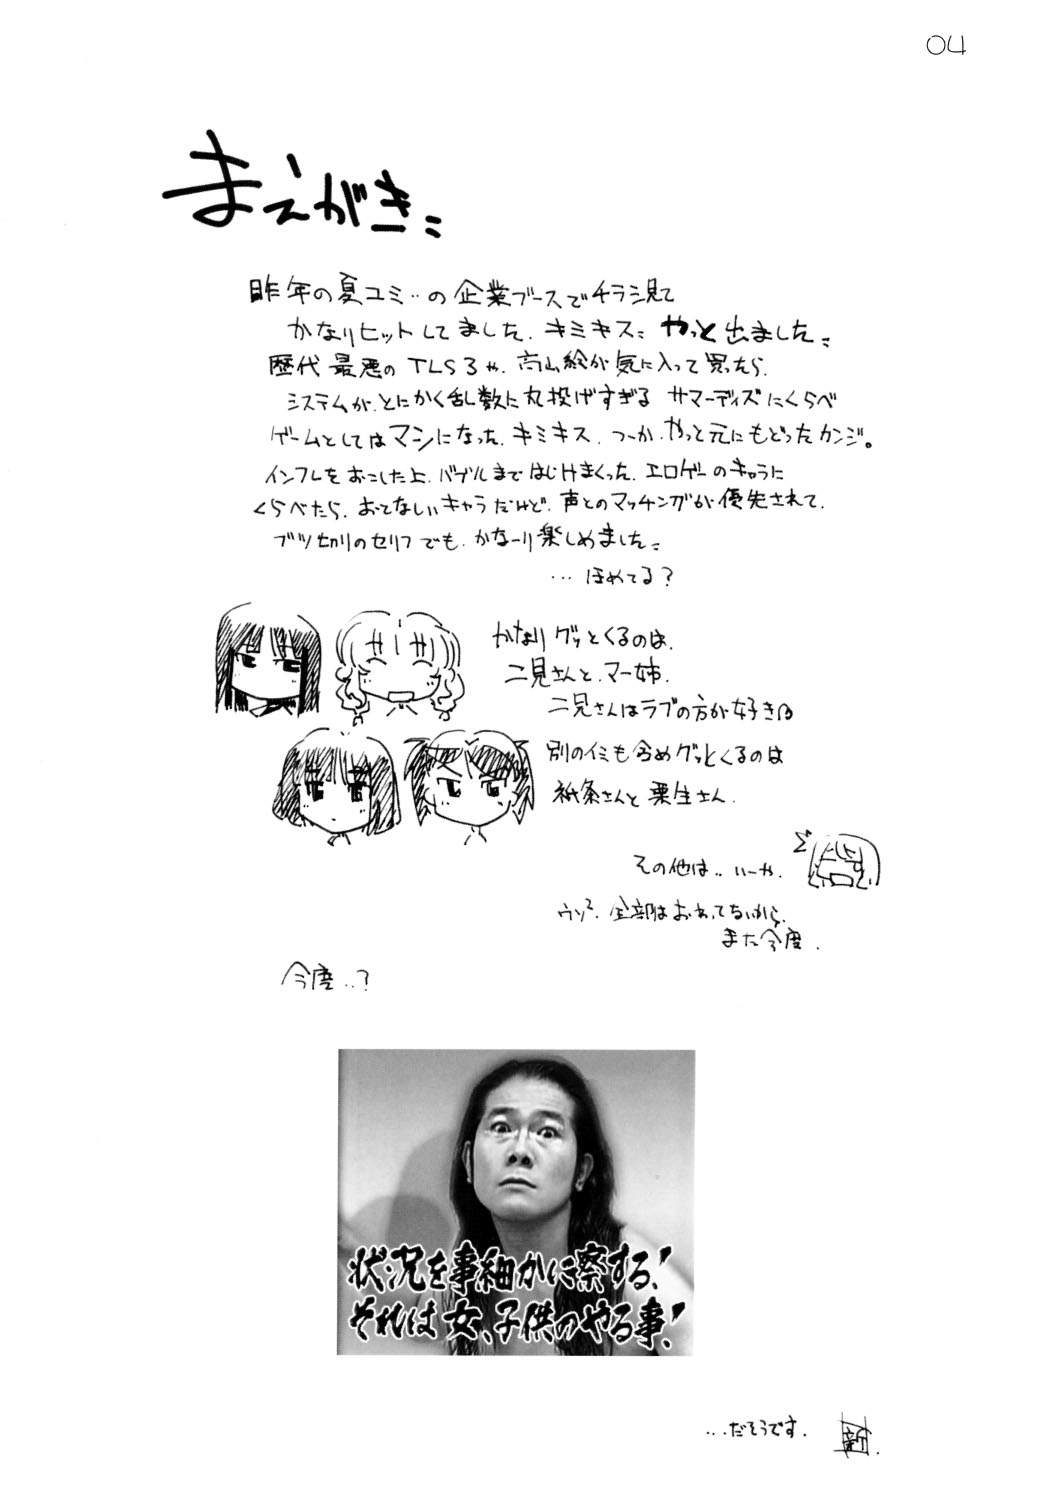 04
まえがき
昨年の夏コミ‥の企業ブースでチラシ見て
かなりヒットしてました.キミキス やっと出ました
歴代最悪のTLS3や.高山絵が気に入って買ったら.
システムが.とにかく乱数に丸投げすぎる サマーデイズにくらべ
ゲームとしてはマシになった.キミキス.つーか.やっと元にもどったカンジ。
インフレをおこした上.バグルまではじけまくった.エロゲーのキャラに
くらべたら.おとなしいキャラだけど.声とのマッチングが優先されて.
ブツ切りのセリフでも.かなーり楽しめました
…ほめてる?
かなりグッとくるのは.
二見さんと.マー姉.
二見さんはラブの方が好き
別のイミも含めグッとくるのは
祇条さんと栗生さん.
その他は‥いーや.
ウソ².全部はおわってないから.
また今度.
今度‥?
状況を事細かに察する!
それは女、子供のやる事!
…だそうです.
新